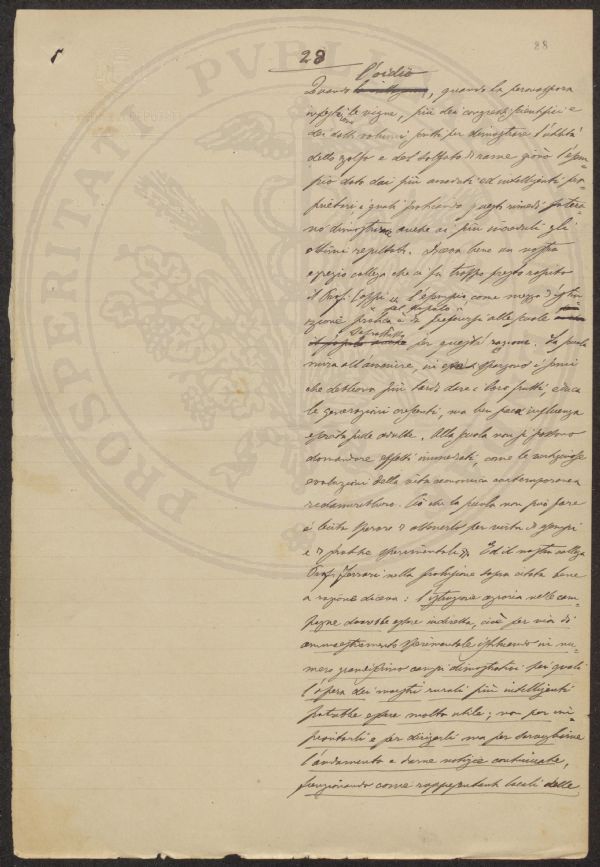 28
28
l'oidio
Quando, quando la peronospora
infestò le vigne, più dei congressi scientifici e
dei dotti volumi scritti per dimostrare l'utilità
dello zolfo e del solfato di rame giovò l'esem-
pio dato dai più avveduti ed intelligenti pro-
prietari i quali praticando questi rimedi potero-
no dimostrare anche ai più increduli gli
ottimi resultati. Diceva bene un nostro
egregio collega che ci fu troppo presto rapito
il Prof. Caffi "l'esempio come mezzo d'istru-
zione pratica del popolo
è da preferirsi alle scuole
per questa ragione. La scuola
mira all'avvenire, in essa si spargono i semi
che debbono più tardi dare i loro frutti, educa
le generazioni crescenti, ma ben poca influenza
esercita sulle adulte. Alla scuola non si possono
domandare effetti immediati, come le vertiginose
evoluzioni della vita economica contemporanea
reclamerebbero. Ciò che la scuola non può fare
è lecito sperare di ottenerlo per virtù di esempi
e di pratiche sperimentali". Ed il nostro collega
Prof. Ferrari nella prolusione sopra citata bene
a ragione diceva: l'istruzione agraria nelle cam-
pagne dovrebbe essere indiretta, cioè per via di
ammaestramento sperimentale istituendo in nu-
mero grandissimo campi dimostrativi pei quali
l'opera dei maestri rurali più intelligenti
potrebbe essere molto utile; non per im-
piantarli e per dirigerli ma per sorvegliarne
l'andamento e darne notizie continuate,
funzionando come rappresentanti locali delle
PROSPERITATI PUBLI